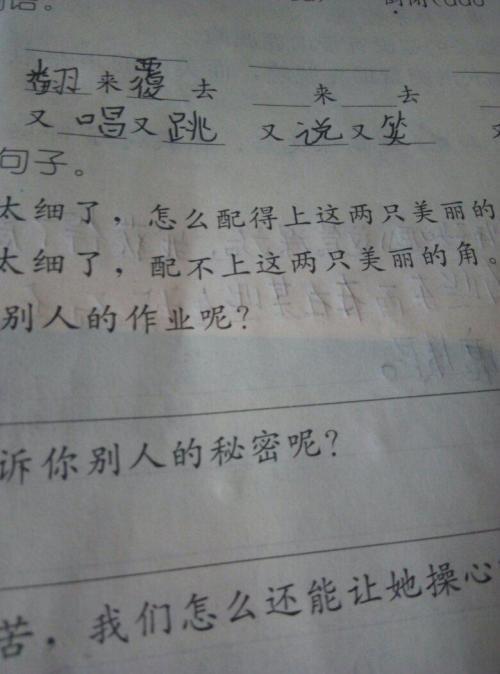 语。
翻来覆去 ___来___去
又唱又跳 又说又笑 又
句子。
太细了，怎么配得上这两只美丽的
太细了，配不上这两只美丽的角。
别人的作业呢？
诉你别人的秘密呢？
苦，我们怎么还能让她操心